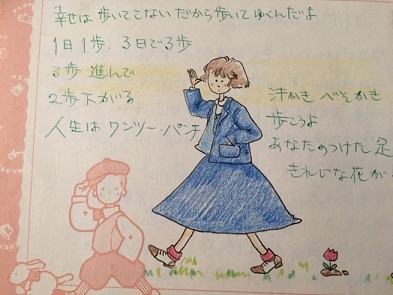 幸せは歩いてこないだから歩いてゆくんだよ
1日1歩、3日で3歩
3歩進んで
2歩下がる
人生はワンツー・パンチ
汗かきべそかき
歩こうよ
あなたのつけた足
きれいな花が